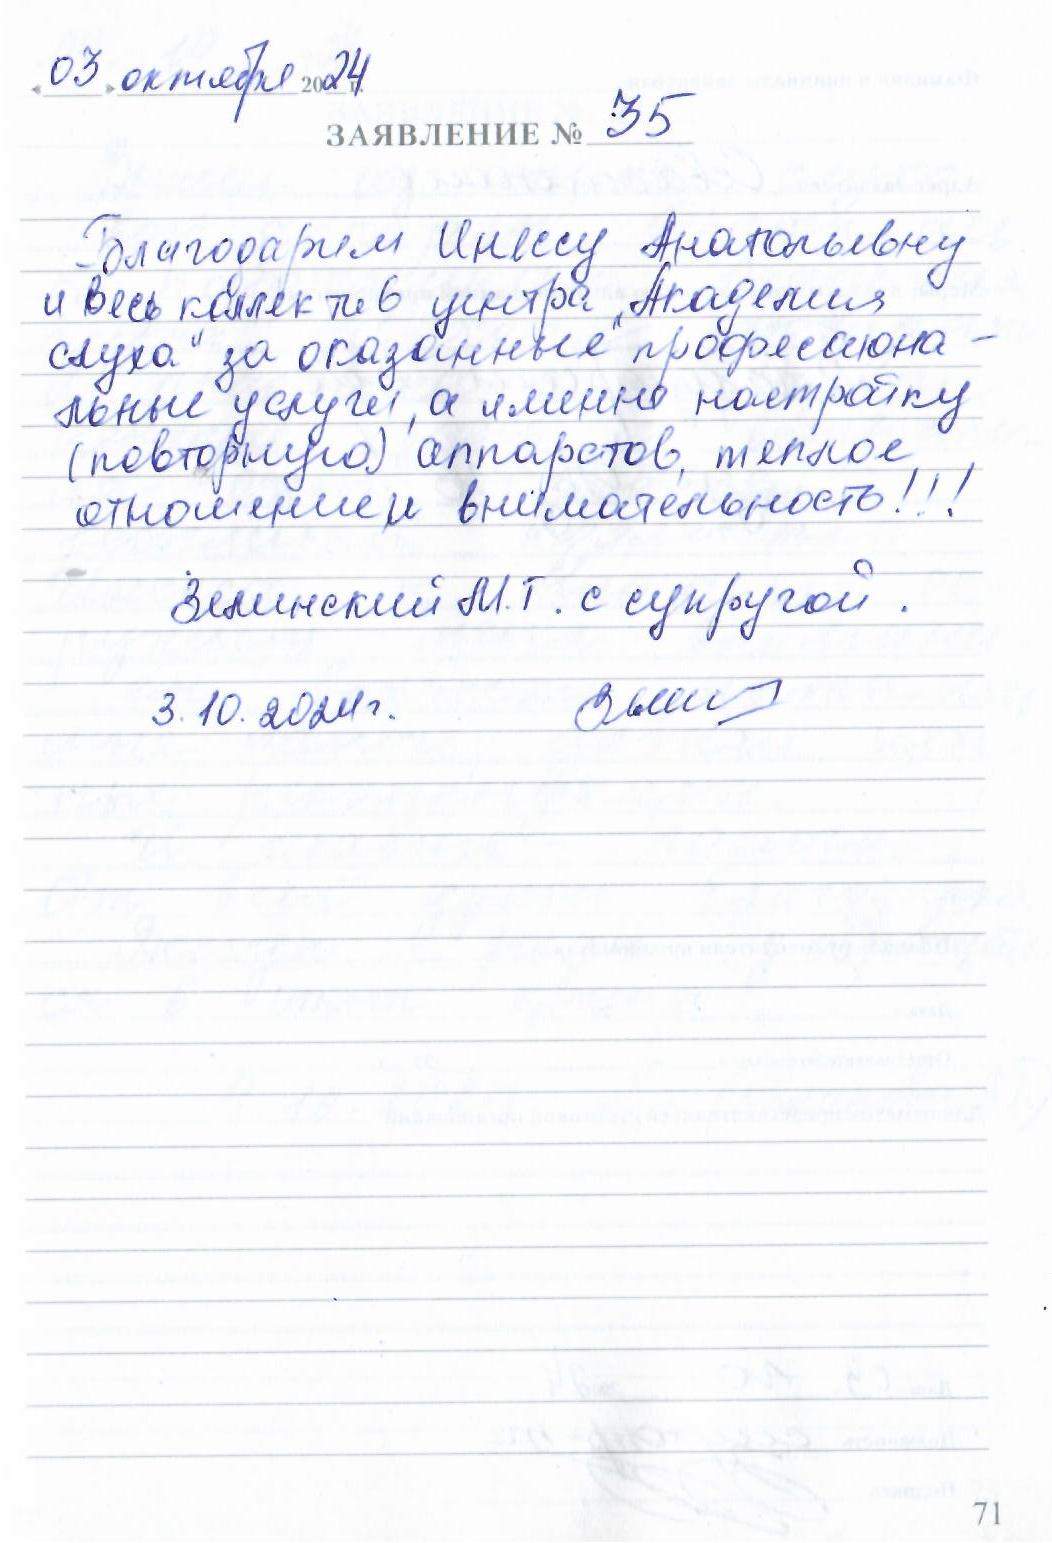 «03» октября 2024 г.
ЗАЯВЛЕНИЕ № 35
Благодарим Инессу Анатольевну
и весь коллектив центра „Академия
слуха“ за оказанные профессиона-
льные услуги, а именно настройку
(повторную) аппаратов, теплое
отношение и внимательность!!!
Зелинский М.Г. с супругой.
3.10.2024г.
71